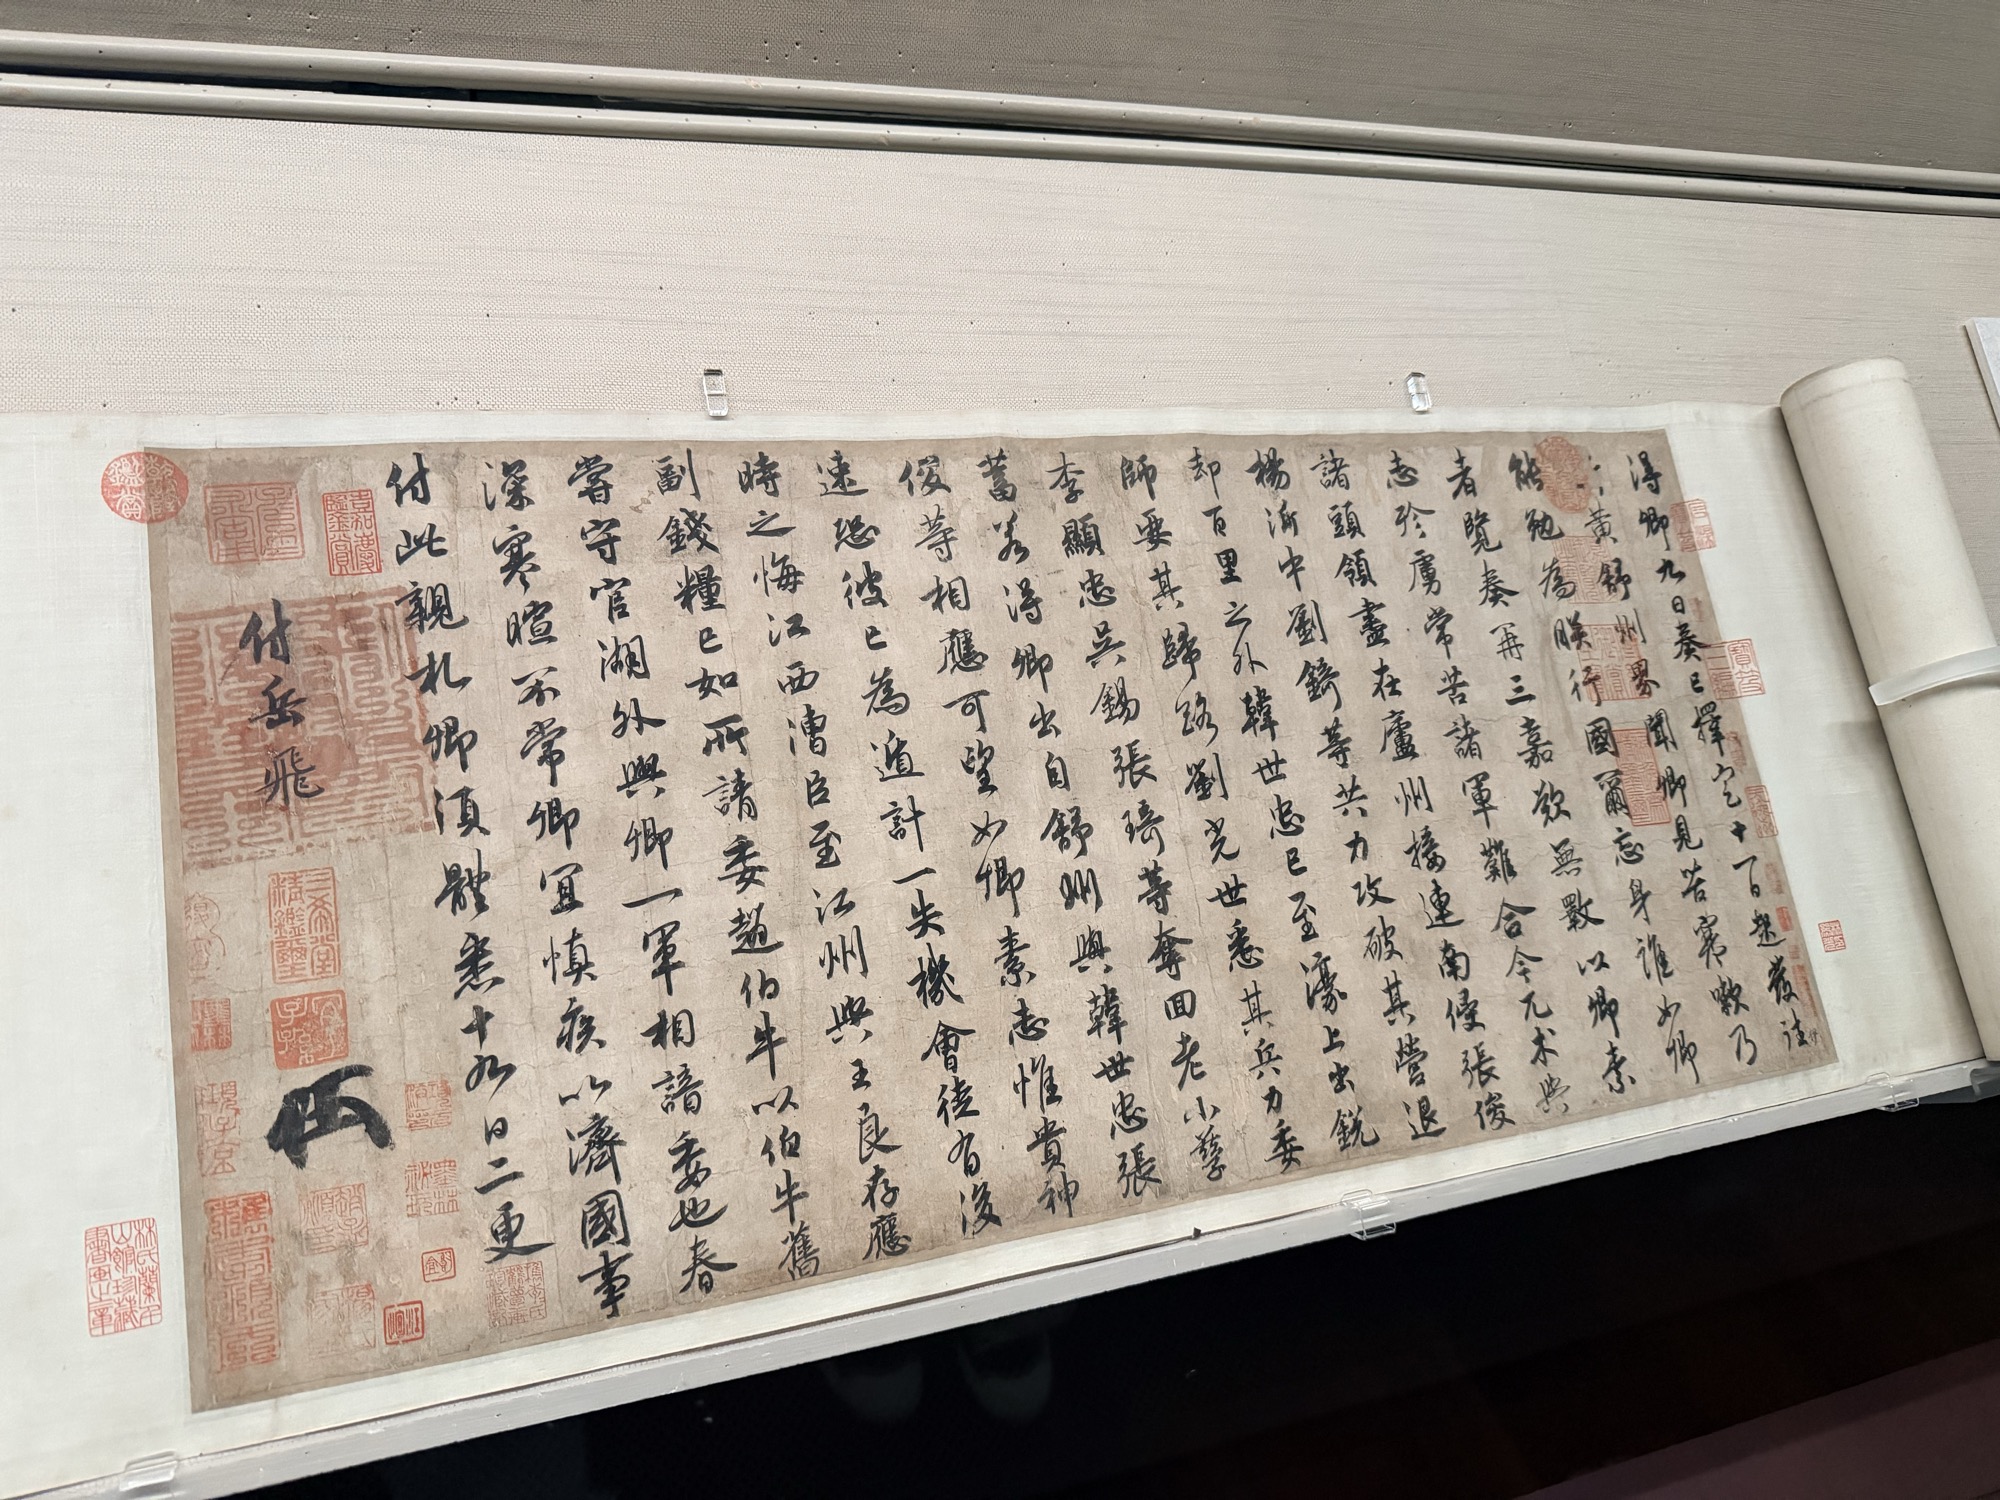 得卿九日奏已擇定十一日起發往
黃舒州界聞卿見苦寒嗽乃
能勉為朕行國爾忘身誰如卿
者覽奏再三嘉歎無斁以卿素
志殄虜常苦諸軍難合今兀朮與
諸頭領盡在廬州接連南侵張俊
楊沂中劉錡等共力攻破其營退
却百里之外韓世忠已至濠上出銳
師要其歸路劉光世悉其兵力委
李顯忠吳錫張琦等奪回老小孳
蓄若得卿出自舒州與韓世忠張
俊等相應可望如卿素志惟貴神
速恐彼已為遁計一失機會徒有後
時之悔江西漕臣至江州與王良存應
副錢糧已如所請委趙伯牛以伯牛舊
嘗守官湖外與卿一軍相諳委也春
深寒暄不常卿宜慎疾以濟國事
付此親札卿須體悉十九日二更
付岳飛
嘉慶鑑賞
乾隆鑑賞
三希堂精鑑璽
宜子孫